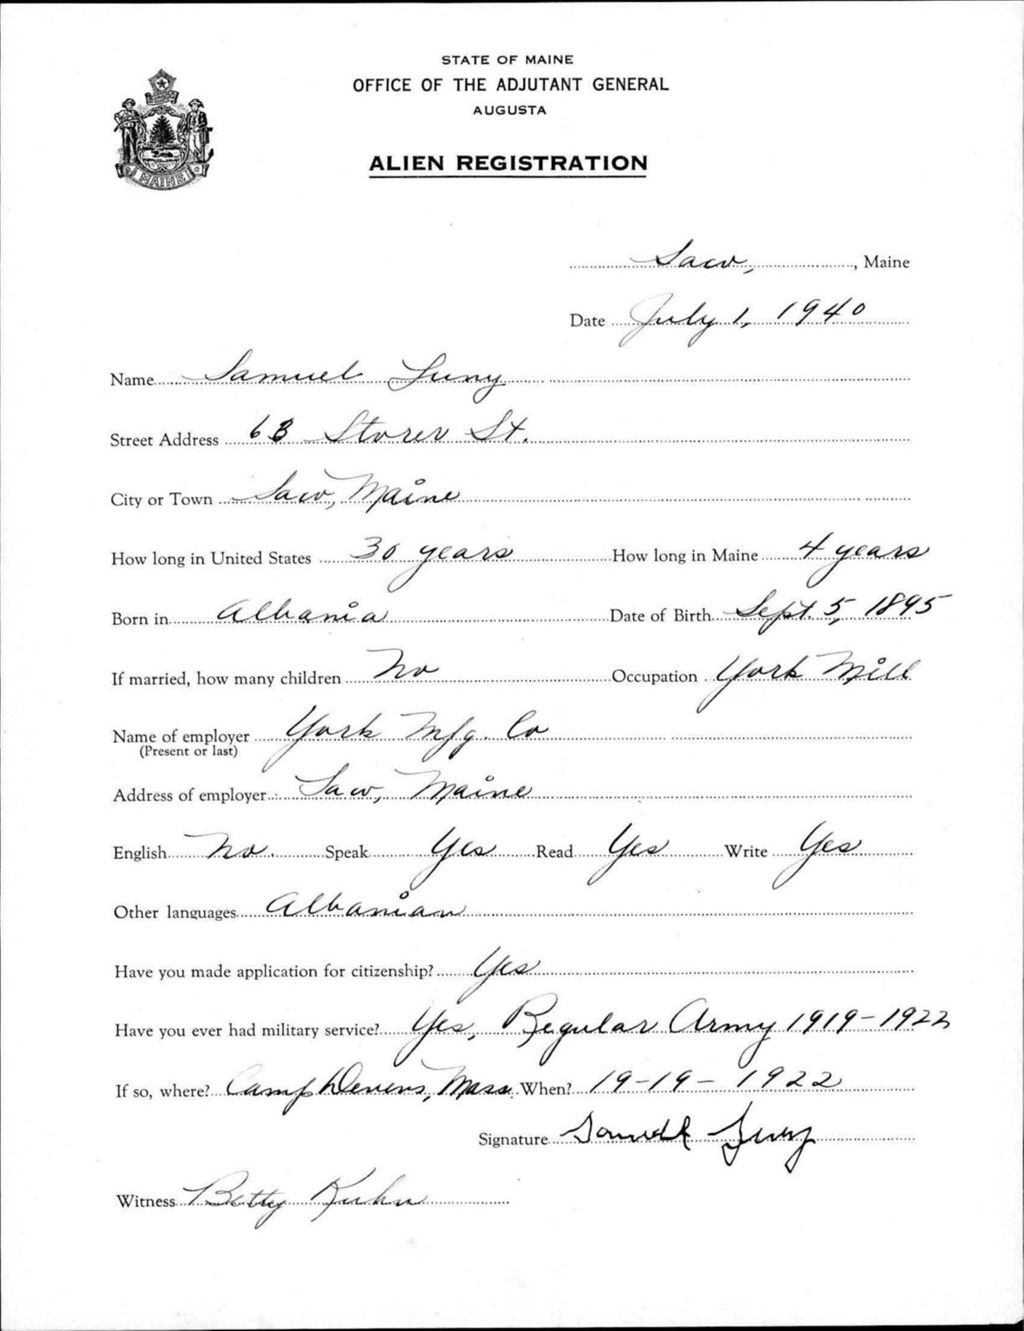 STATE OF MAINE
OFFICE OF THE ADJUTANT GENERAL
AUGUSTA
ALIEN REGISTRATION
MAINE
Saco, , Maine
Date July 1, 1940
Name Samuel
Street Address 63 Storer St.
City or Town Saco, Maine
How long in United States 30 years How long in Maine 4 years
Born in Albania Date of Birth Sept. 5, 1895
If married, how many children No Occupation York Mill
Name of employer York Mfg. Co
(Present or last)
Address of employer Saco, Maine
English No. Speak Yes Read Yes Write Yes
Other languages Albanian
Have you made application for citizenship? Yes
Have you ever had military service? Yes, Regular Army 1919-1922
If so, where? Camp Devens, Mass. When? 19-19-1922
Signature
Witness Betty Kuhn